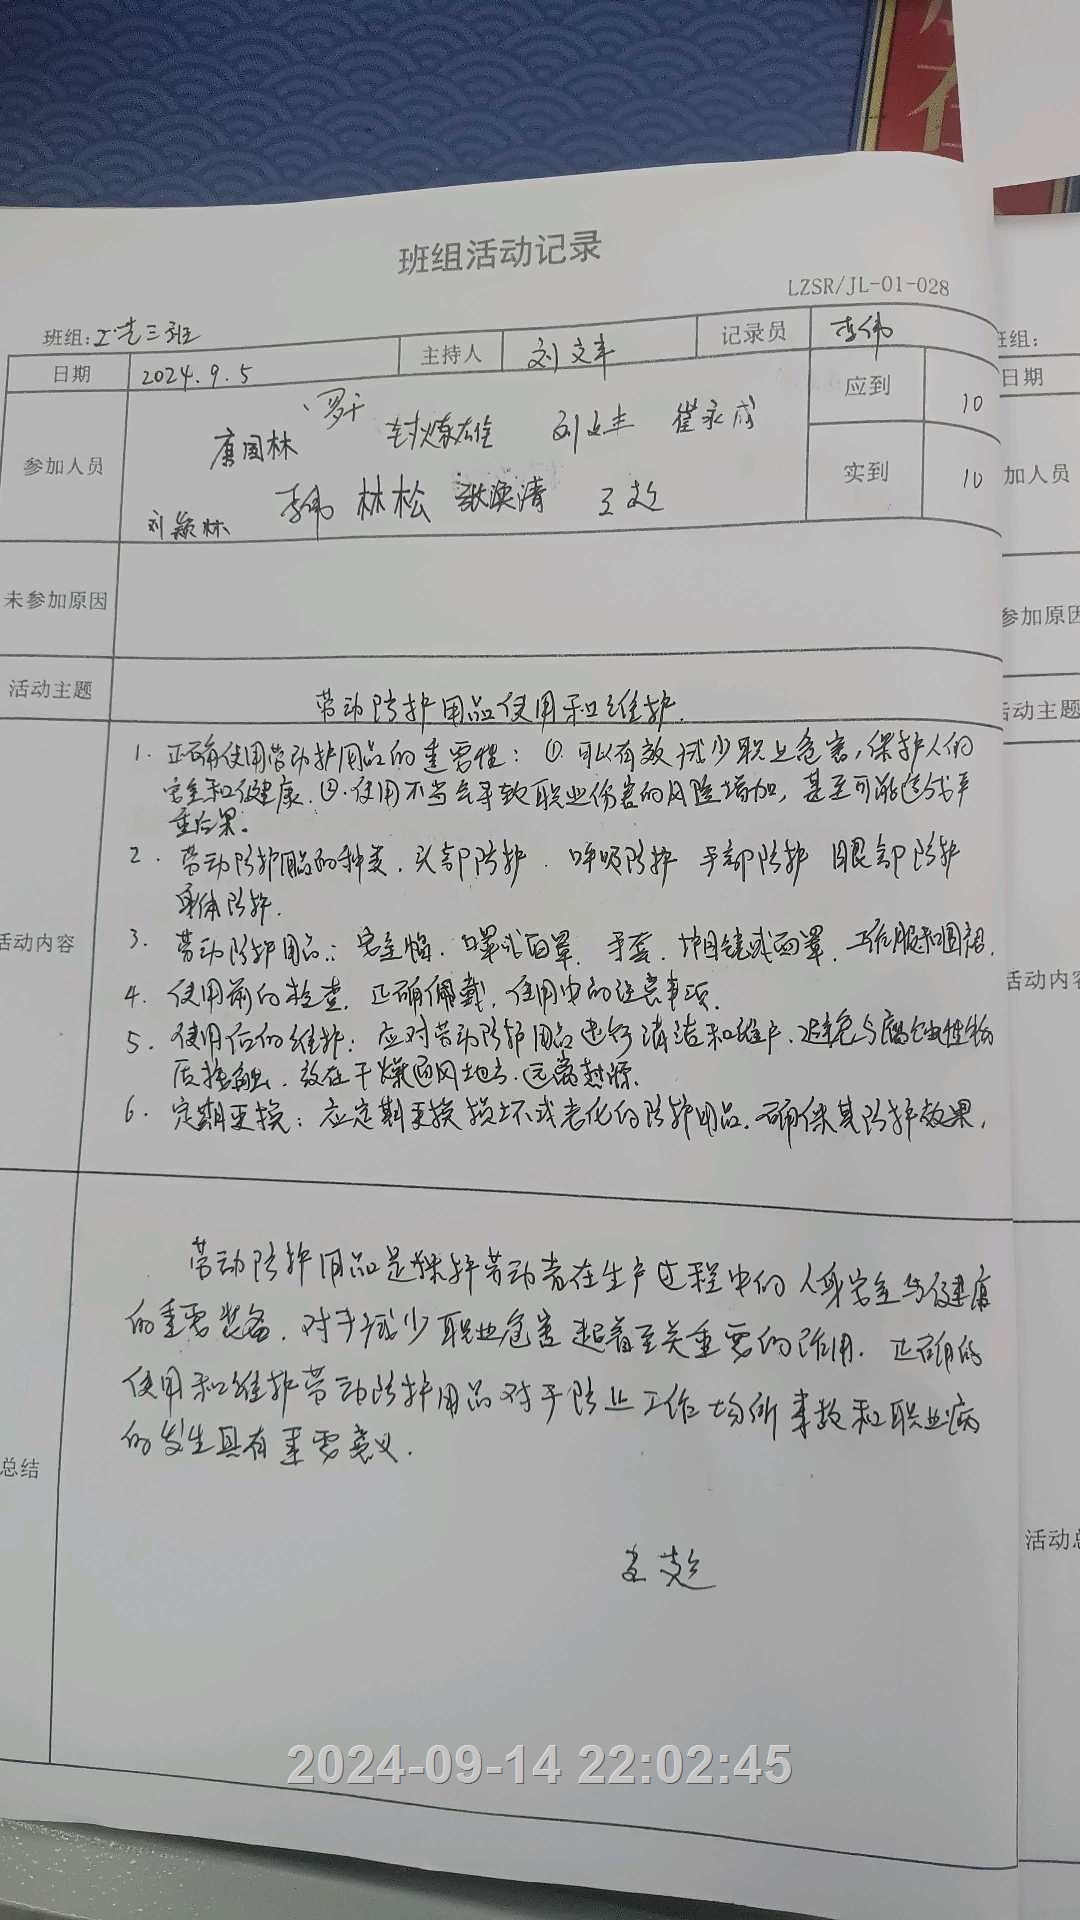 班组活动记录
LZSR/JL-01-028
班组:工艺三班
日期 2024.9.5 主持人 刘文丰 记录员 李伟
参加人员
罗
唐国林 封焕雄 刘文丰 崔永成
刘颖林 李伟 林松 张焕清 王超
应到 10
实到 10
未参加原因
活动主题 劳动防护用品使用和维护.
活动内容
1. 正确使用劳动护用品的重要性：①.可以有效减少职业危害,保护人的
安全和健康.②.使用不当会导致职业伤害的风险增加,甚至可能造成严
重后果。
2. 劳动防护用品的种类.头部防护.呼吸防护 手部防护 眼部防护
身体防护.
3. 劳动防护用品：安全帽.口罩或面罩.手套.护目镜或面罩.工作服和围裙.
4. 使用前的检查.正确佩戴,使用中的注意事项.
5. 使用后的维护：应对劳动防护用品进行清洁和维护.避免与腐蚀性物
质接触.放在干燥通风地方.远离热源.
6. 定期更换：应定期更换损坏或老化的防护用品.确保其防护效果.
总结
劳动防护用品是保护劳动者在生产过程中的人身安全与健康
的重要装备.对于减少职业危害起着至关重要的作用.正确的
使用和维护劳动防护用品对于防止工作场所事故和职业病
的发生具有重要意义.
王超
2024-09-14 22:02:45
班组:
日期
加人员
参加原因
活动主题
活动内容
活动总